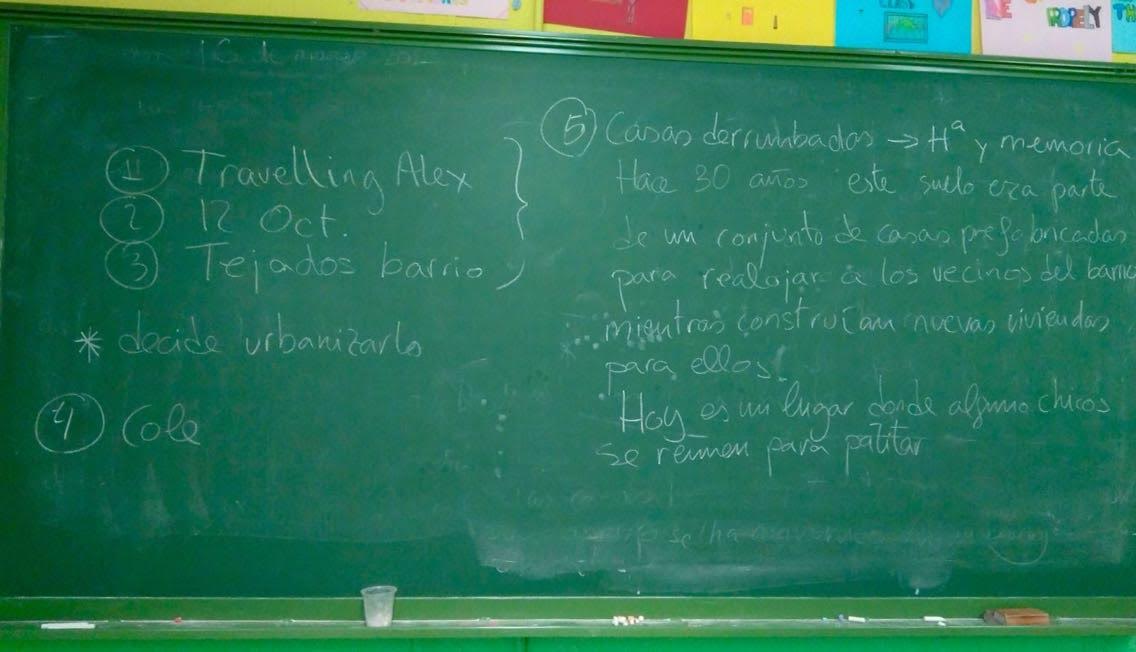 ① Travelling Alex
② 12 Oct.
③ Tejados barrio
* decide urbanizarlo
④ Cole
⑤ Casas derrumbadas → Hª y memoria
Hace 30 años este suelo era parte
de un conjunto de casas prefabricadas
para realojar a los vecinos del barrio
mientras construían nuevas viviendas
para ellos.
Hoy es un lugar donde alguno chicos
se reúnen para patitar
ROPELY
TH